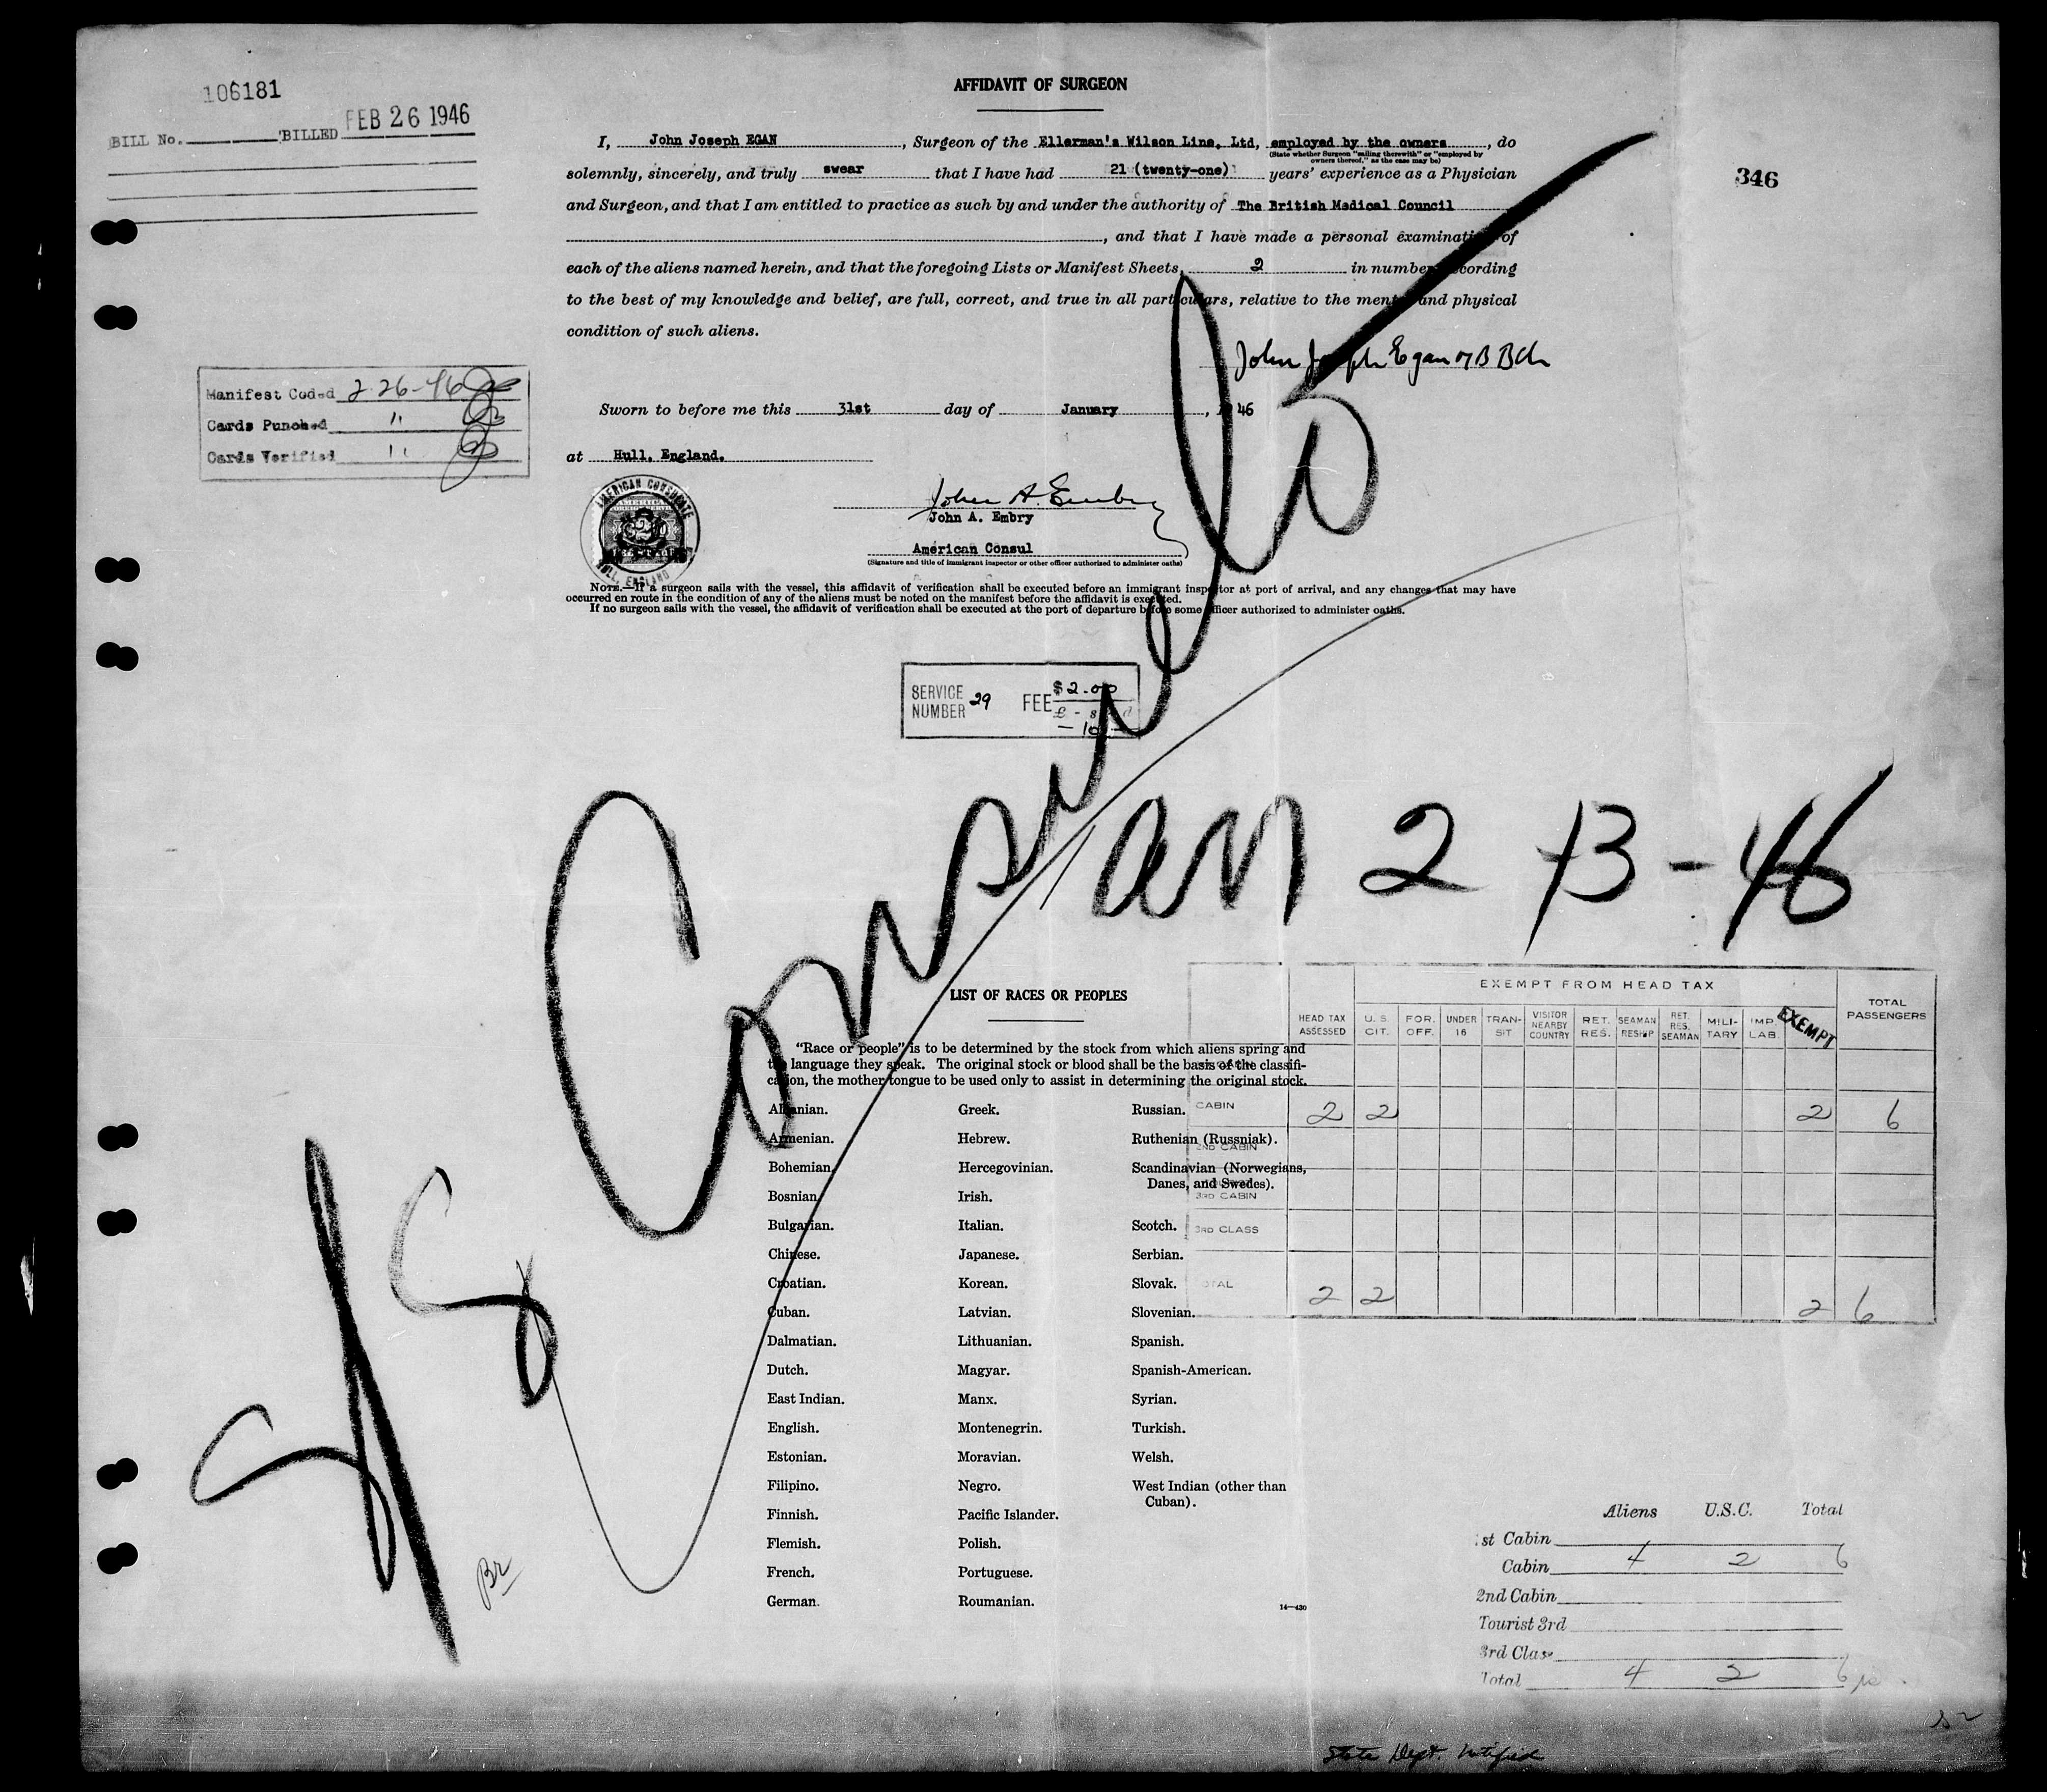 106181
BILL No. BILLED FEB 26 1946
346
AFFIDAVIT OF SURGEON
I, John Joseph EGAN, Surgeon of the Ellerman's Wilson Line. Ltd, employed by the owners, do
(State whether Surgeon "sailing therewith" or "employed by
owners thereof," as the case may be)
solemnly, sincerely, and truly swear that I have had 21 (twenty-one) years' experience as a Physician
and Surgeon, and that I am entitled to practice as such by and under the authority of The British Medical Council
, and that I have made a personal examination of
each of the aliens named herein, and that the foregoing Lists or Manifest Sheets, 2 in number, according
to the best of my knowledge and belief, are full, correct, and true in all particulars, relative to the mental and physical
condition of such aliens.
John Joseph Egan MB BCh
Manifest Coded 2-26-46
Cards Punched "
Cards Verified "
Sworn to before me this 31st day of January, 1946
at Hull, England.
AMERICAN CONSULATE
HULL, ENGLAND
John A. Embry
John A. Embry
American Consul
(Signature and title of immigrant inspector or other officer authorized to administer oaths)
NOTE.—If a surgeon sails with the vessel, this affidavit of verification shall be executed before an immigrant inspector at port of arrival, and any changes that may have
occurred en route in the condition of any of the aliens must be noted on the manifest before the affidavit is executed.
If no surgeon sails with the vessel, the affidavit of verification shall be executed at the port of departure before some officer authorized to administer oaths.
SERVICE NUMBER 29 FEE $2.00
£ - s - d
- 10 -
S/S Consuelo
arr 2-13-46
LIST OF RACES OR PEOPLES
"Race or people" is to be determined by the stock from which aliens spring and
the language they speak. The original stock or blood shall be the basis of the classifi-
cation, the mother tongue to be used only to assist in determining the original stock.
Albanian. Greek. Russian.
Armenian. Hebrew. Ruthenian (Russniak).
Bohemian. Hercegovinian. Scandinavian (Norwegians,
Danes, and Swedes).
Bosnian. Irish.
Bulgarian. Italian. Scotch.
Chinese. Japanese. Serbian.
Croatian. Korean. Slovak.
Cuban. Latvian. Slovenian.
Dalmatian. Lithuanian. Spanish.
Dutch. Magyar. Spanish-American.
East Indian. Manx. Syrian.
English. Montenegrin. Turkish.
Estonian. Moravian. Welsh.
Filipino. Negro. West Indian (other than
Cuban).
Finnish. Pacific Islander.
Flemish. Polish.
French. Portuguese.
German. Roumanian.
14—430
EXEMPT FROM HEAD TAX
HEAD TAX ASSESSED U. S. CIT. FOR. OFF. UNDER 16 TRAN-SIT VISITOR NEARBY COUNTRY RET. RES. SEAMAN RESHIP RET. RES. SEAMAN MILI-TARY IMP LAB. EXEMPT TOTAL PASSENGERS
CABIN 2 2 2 6
2ND CABIN
3RD CABIN
3RD CLASS
TOTAL 2 2 2 6
Aliens U.S.C. Total
1st Cabin
Cabin 4 2 6
2nd Cabin
Tourist 3rd
3rd Class
Total 4 2 6
Br
State Dept. Notified